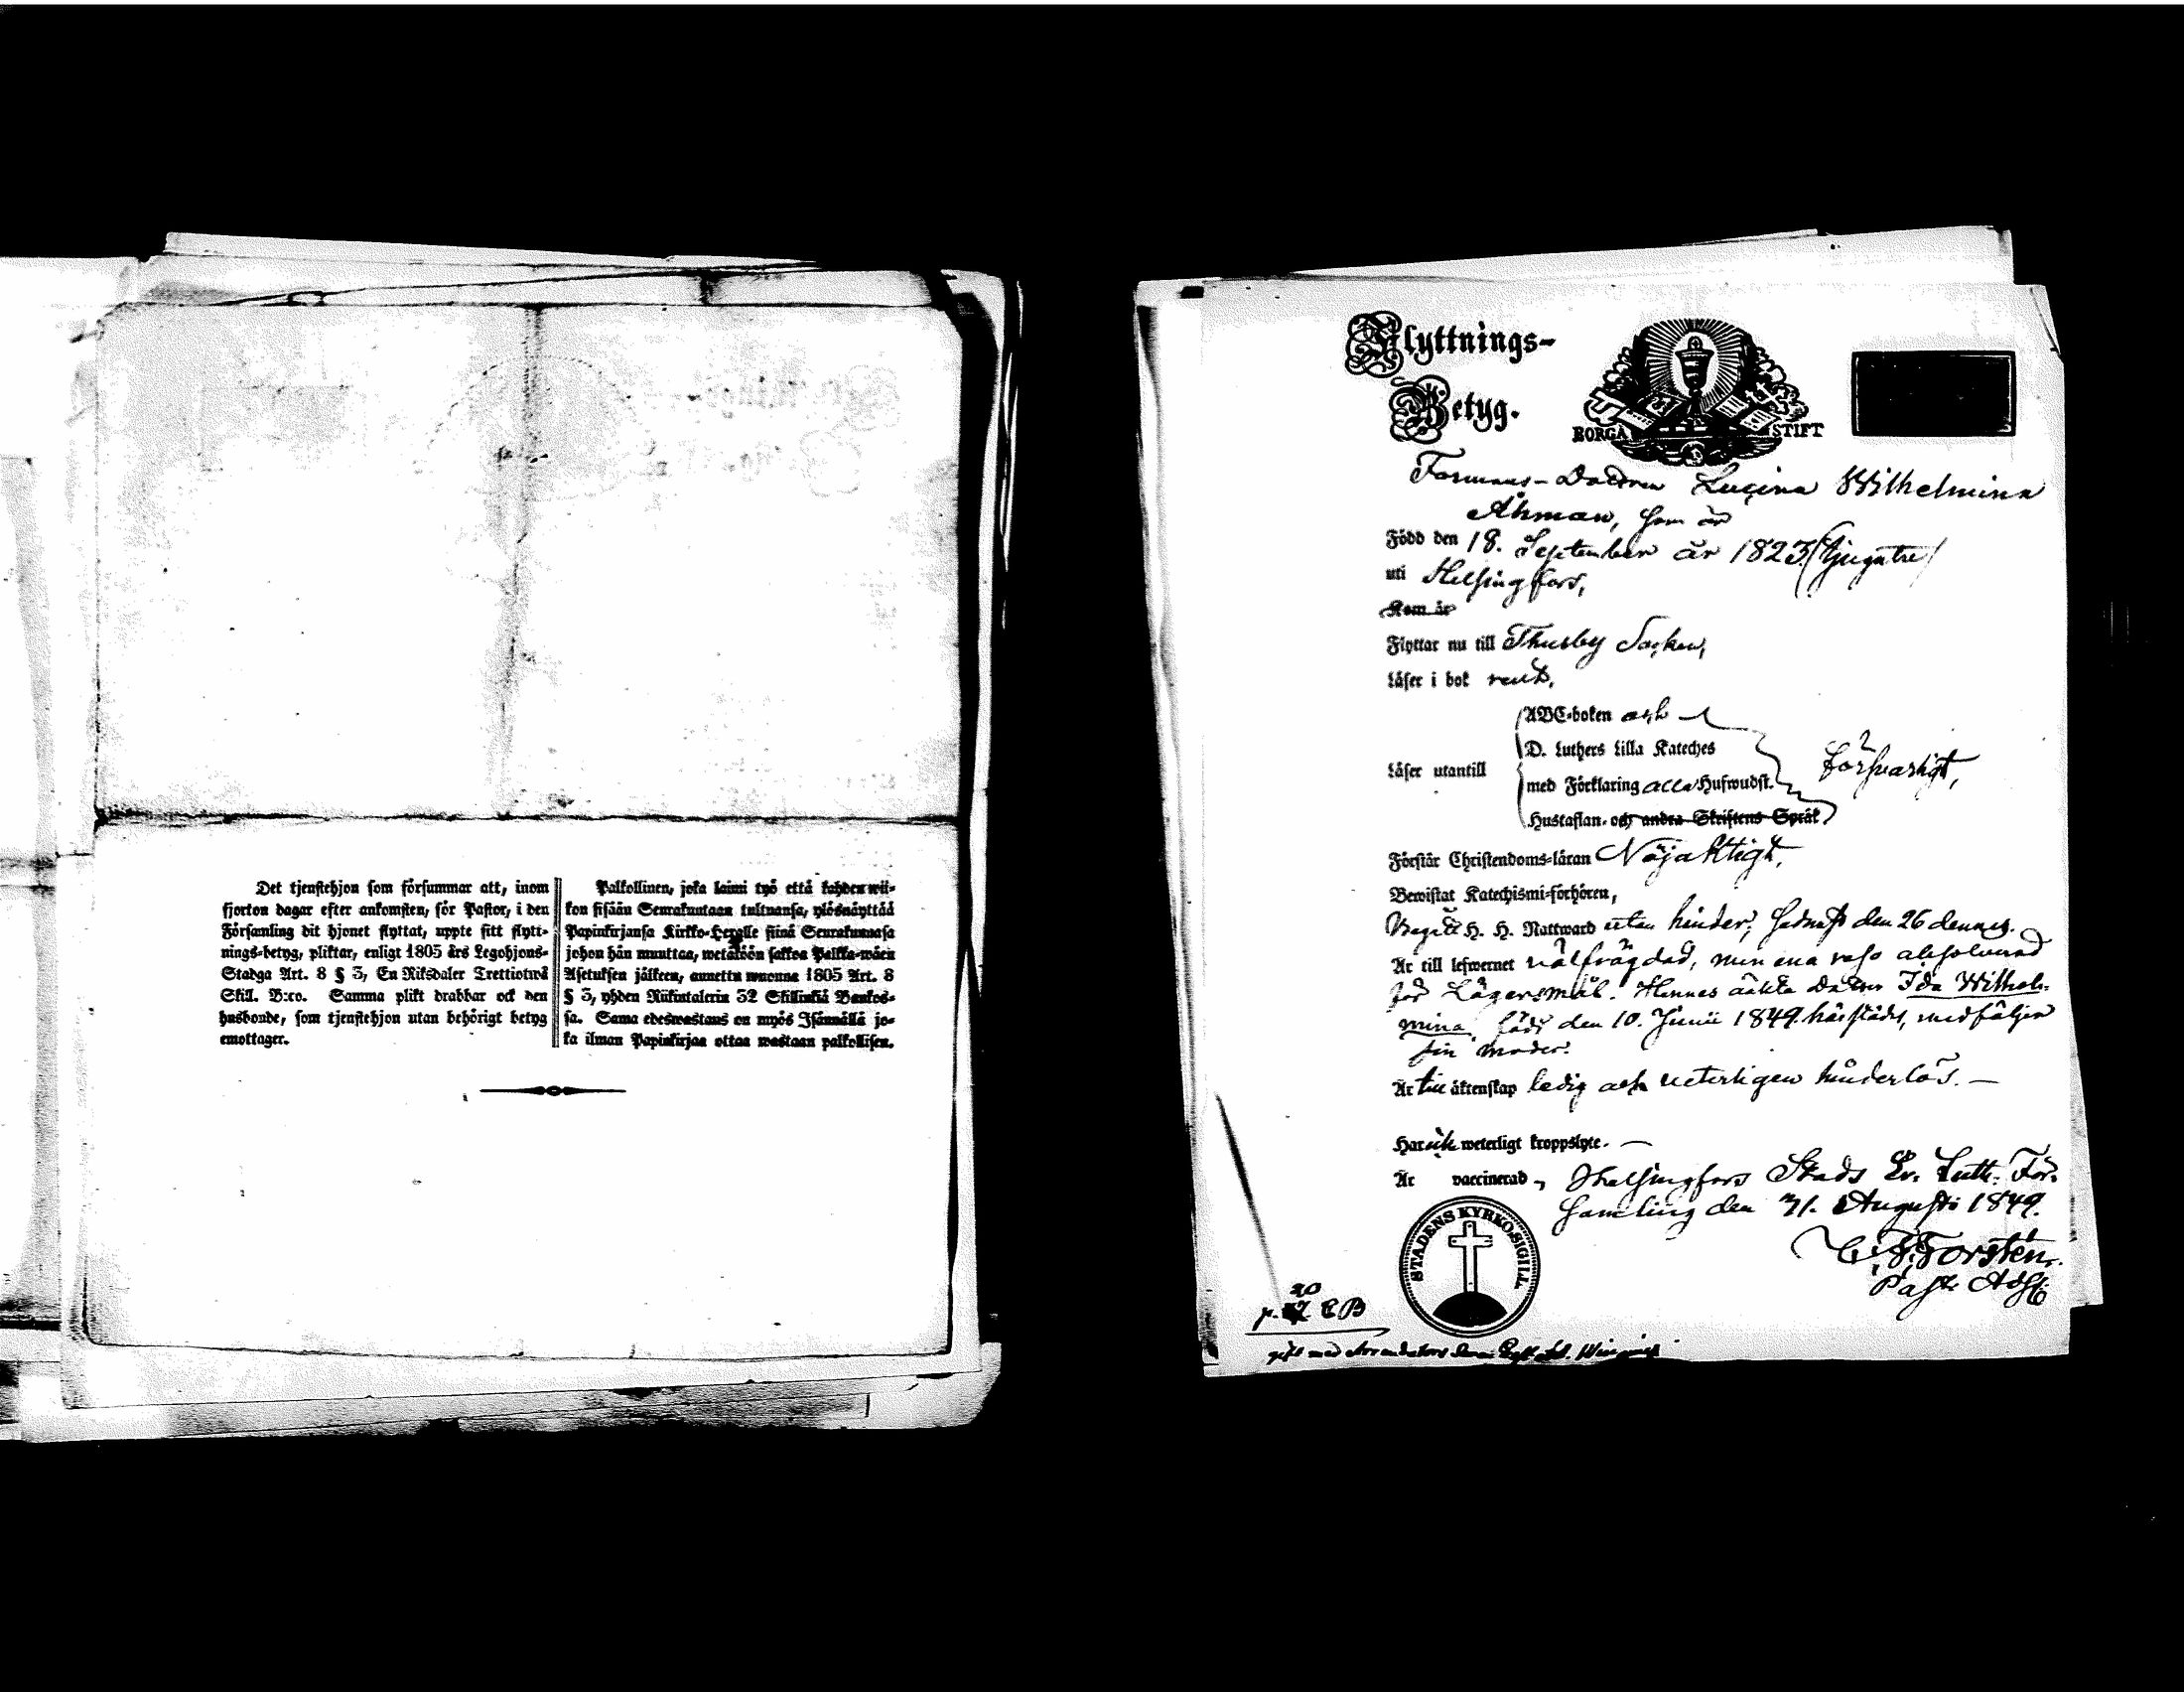 Det tjenstehjon som försummar att, inom
fjorton dagar efter ankomsten, för Pastor, i den
Församling dit hjonet flyttat, uppte sitt flytt-
nings-betyg, pliktar, enligt 1805 års Legohjons-
Stadga Art. 8 § 3, En Riksdaler Trettiotwå
Skill. B:co. Samma plikt drabbar ock den
husbonde, som tjenstehjon utan behörigt betyg
emottager.
Palkollinen, joka laimi lyö että kahden wii-
kon sisään Seurakuntaan tultuansa, ylösnäyttää
Papinkirjansa Kirkko-Herralle siinä Seurakunnasa
johon hän muuttaa, wetäköön sakkoa Palkka-wäen
Asetuksen jälkeen, annettu wuonna 1805 Art. 8
§ 3, yhden Riikintalerin 32 Skillinkiä Bankos-
sa. Sama edeswastaus on myös Isännällä jo-
ka ilman Papinkirjaa ottaa wastaan palkollisen.
Flyttnings-
Betyg.
BORGÅ STIFT
Formans-Dottren Lucina Wilhelmina
Åhman, som är
Född den 18. September år 1823 (tjugutre)
uti Helsingfors,
Kom år
Flyttar nu till Thusby Socken,
Läser i bok rent,
ABC-boken och
D. Luthers Lilla Kateches
Läser utantill
med Förklaring alla Hufwudst.
Försvarligt,
Hustaflan och andra Skriftens Språk
Förstår Christendoms-läran Nöjaktigt,
Bewistat Katechismi-förhören,
Begått H. H. Nattward utan hinder, sednast den 26 dennes.
Är till lefwernet välfrägdad, men ena resa absolverad
för Lägersmål. Hennes oäkta Dotter Ida Wilhel-
mina, född den 10. Junii 1849 härstädes, medföljer
sin moder.
Är till äktenskap ledig och veterligen hinderlös. —
Har ick weterligt kroppslyte. —
Är vaccinerad, Helsingfors Stads Ev. Luth. För-
samling den 31. Augusti 1849.
STADENS KYRKO-SIGILL
Forstén.
Past. Adj.
20
p. EB
gift med